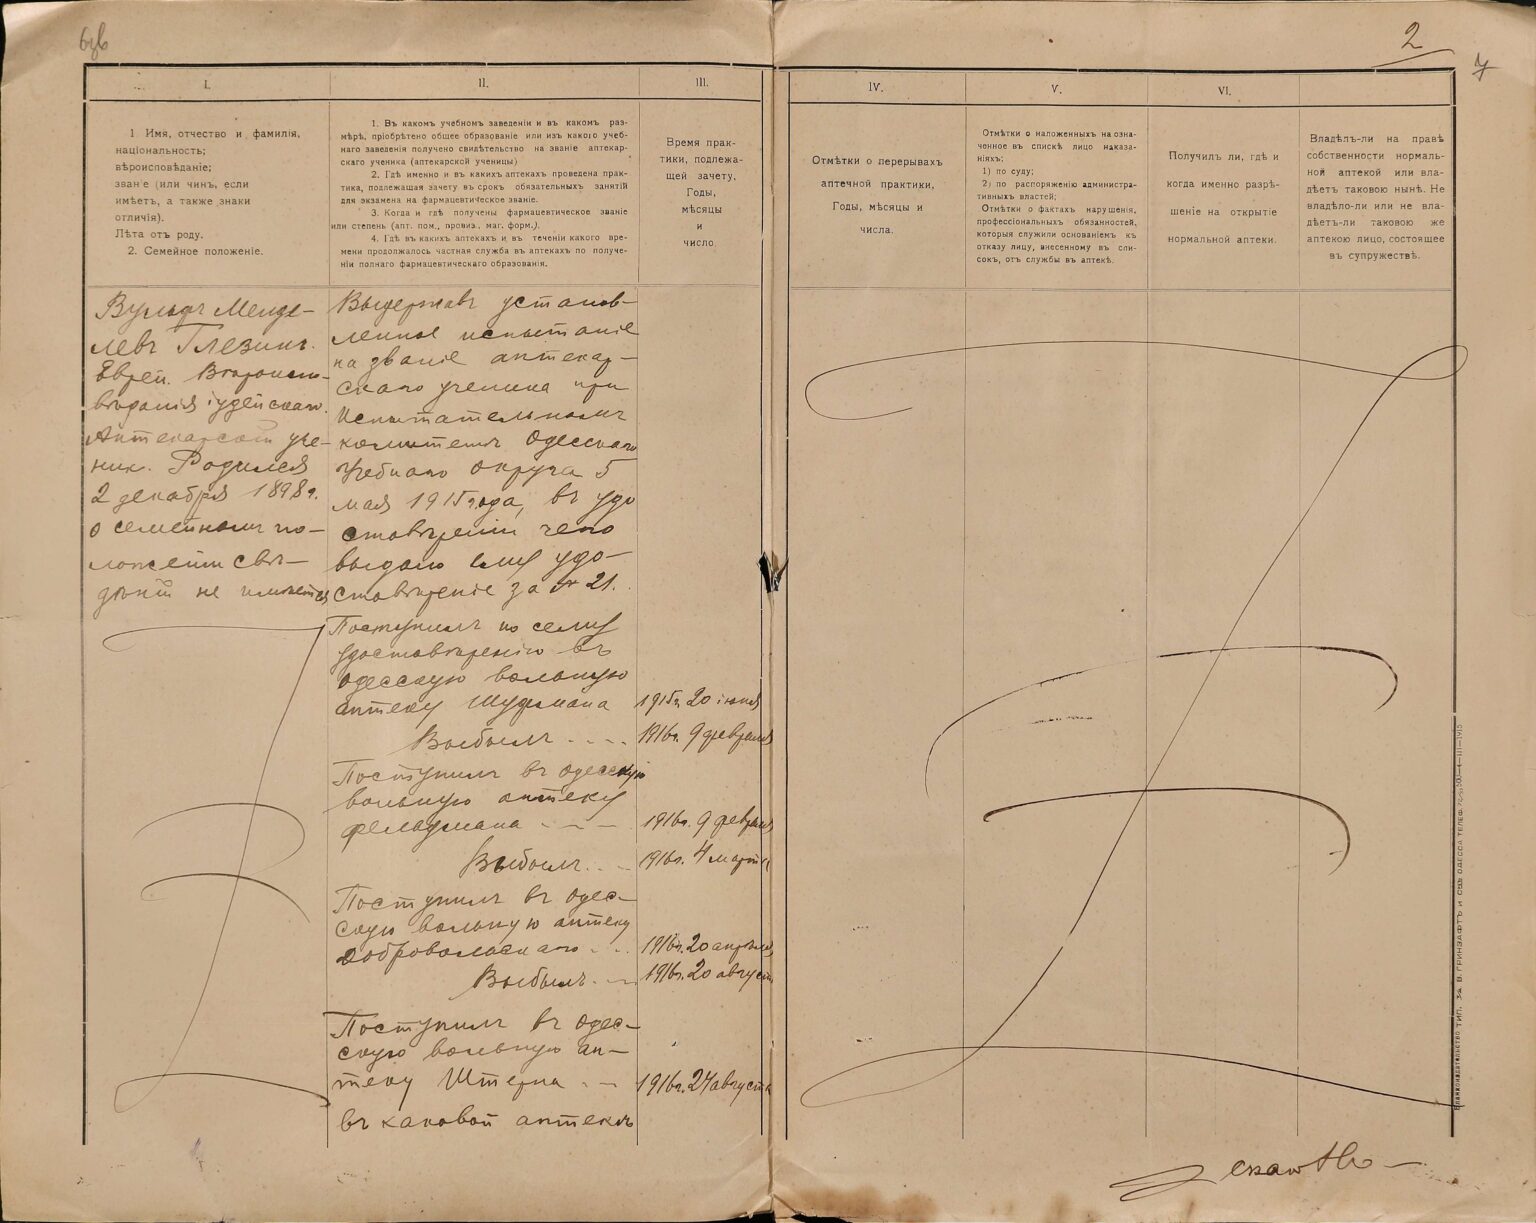 6зв
2
7
I.
II.
III.
IV.
V.
VI.
1 Имя, отчество и фамилія,
національность;
вѣроисповѣданіе;
званіе (или чинъ, если
имѣетъ, а также знаки
отличія).
Лѣта отъ роду.
2. Семейное положеніе.
1. Въ какомъ учебномъ заведеніи и въ какомъ раз-
мѣрѣ, пріобрѣтено общее образованіе или изъ какого учеб-
наго заведенія получено свидѣтельство на званіе аптекар-
скаго ученика (аптекарской ученицы)
2. Гдѣ именно и въ какихъ аптекахъ проведена прак-
тика, подлежащая зачету въ срокъ обязательныхъ занятій
для экзамена на фармацевтическое званіе.
3. Когда и гдѣ получены фармацевтическое званіе
или степень (апт. пом., провиз., маг. форм.).
4. Гдѣ въ какихъ аптекахъ и въ теченіи какого вре-
мени продолжалось частная служба въ аптекахъ по получе-
ніи полнаго фармацевтическаго образованія.
Время прак-
тики, подлежа-
щей зачету,
Годы,
мѣсяцы
и
число.
Отмѣтки о перерывахъ
аптечной практики,
Годы, мѣсяцы и
числа.
Отмѣтки о наложенныхъ на озна-
ченное въ спискѣ лицо наказа-
ніяхъ;
1) по суду;
2) по распоряженію администра-
тивныхъ властей;
Отмѣтки о фактахъ нарушенія,
профессіональныхъ обязанностей,
которыя служили основаніемъ къ
отказу лицу, внесенному въ спи-
сокъ, отъ службы въ аптекѣ.
Получилъ ли, гдѣ и
когда именно разрѣ-
шеніе на открытіе
нормальной аптеки.
Владѣлъ-ли на правѣ
собственности нормаль-
ной аптекой или вла-
дѣетъ таковою нынѣ. Не
владѣло-ли или не вла-
дѣетъ-ли таковою же
аптекою лицо, состоящее
въ супружествѣ.
Вульфъ Менде-
левъ Глезинъ.
Еврей. Вѣроиспо-
вѣданія іудейскаго.
Аптекарскій уче-
никъ. Родился
2 декабря 1898 г.
о семейномъ по-
ложеніи свѣ-
дѣній не имѣется
Выдержавъ установ-
ленное испытаніе
на званіе аптекар-
скаго ученика при
Испытательномъ
комитетѣ Одесскаго
Учебнаго округа 5
мая 1915 года, въ удо
стовѣреніи чего
выдано ему удо-
стовѣреніе за № 21.
Поступилъ по сему
удостовѣренію въ
одесскую вольную
аптеку Шурмана 1915г. 20 іюня
Выбылъ - - - - 1916г. 9 февраля
Поступилъ въ одесскую
вольную аптеку
Фельдмана - - - 1916г. 9 февраля
Выбылъ . . - 1916г. 4 марта
Поступилъ въ одес-
скую вольную аптеку
Добровольскаго - - - 1916г. 20 апрѣля
Выбылъ. - - 1916г. 20 августа
Поступилъ въ одес-
скую вольную ап-
теку Штерна - - 1916г. 24 августа
въ каковой аптекѣ
Бланкоиздательство тип. Зв. В. Гринзафтъ и Сыъ Одесса телеф.